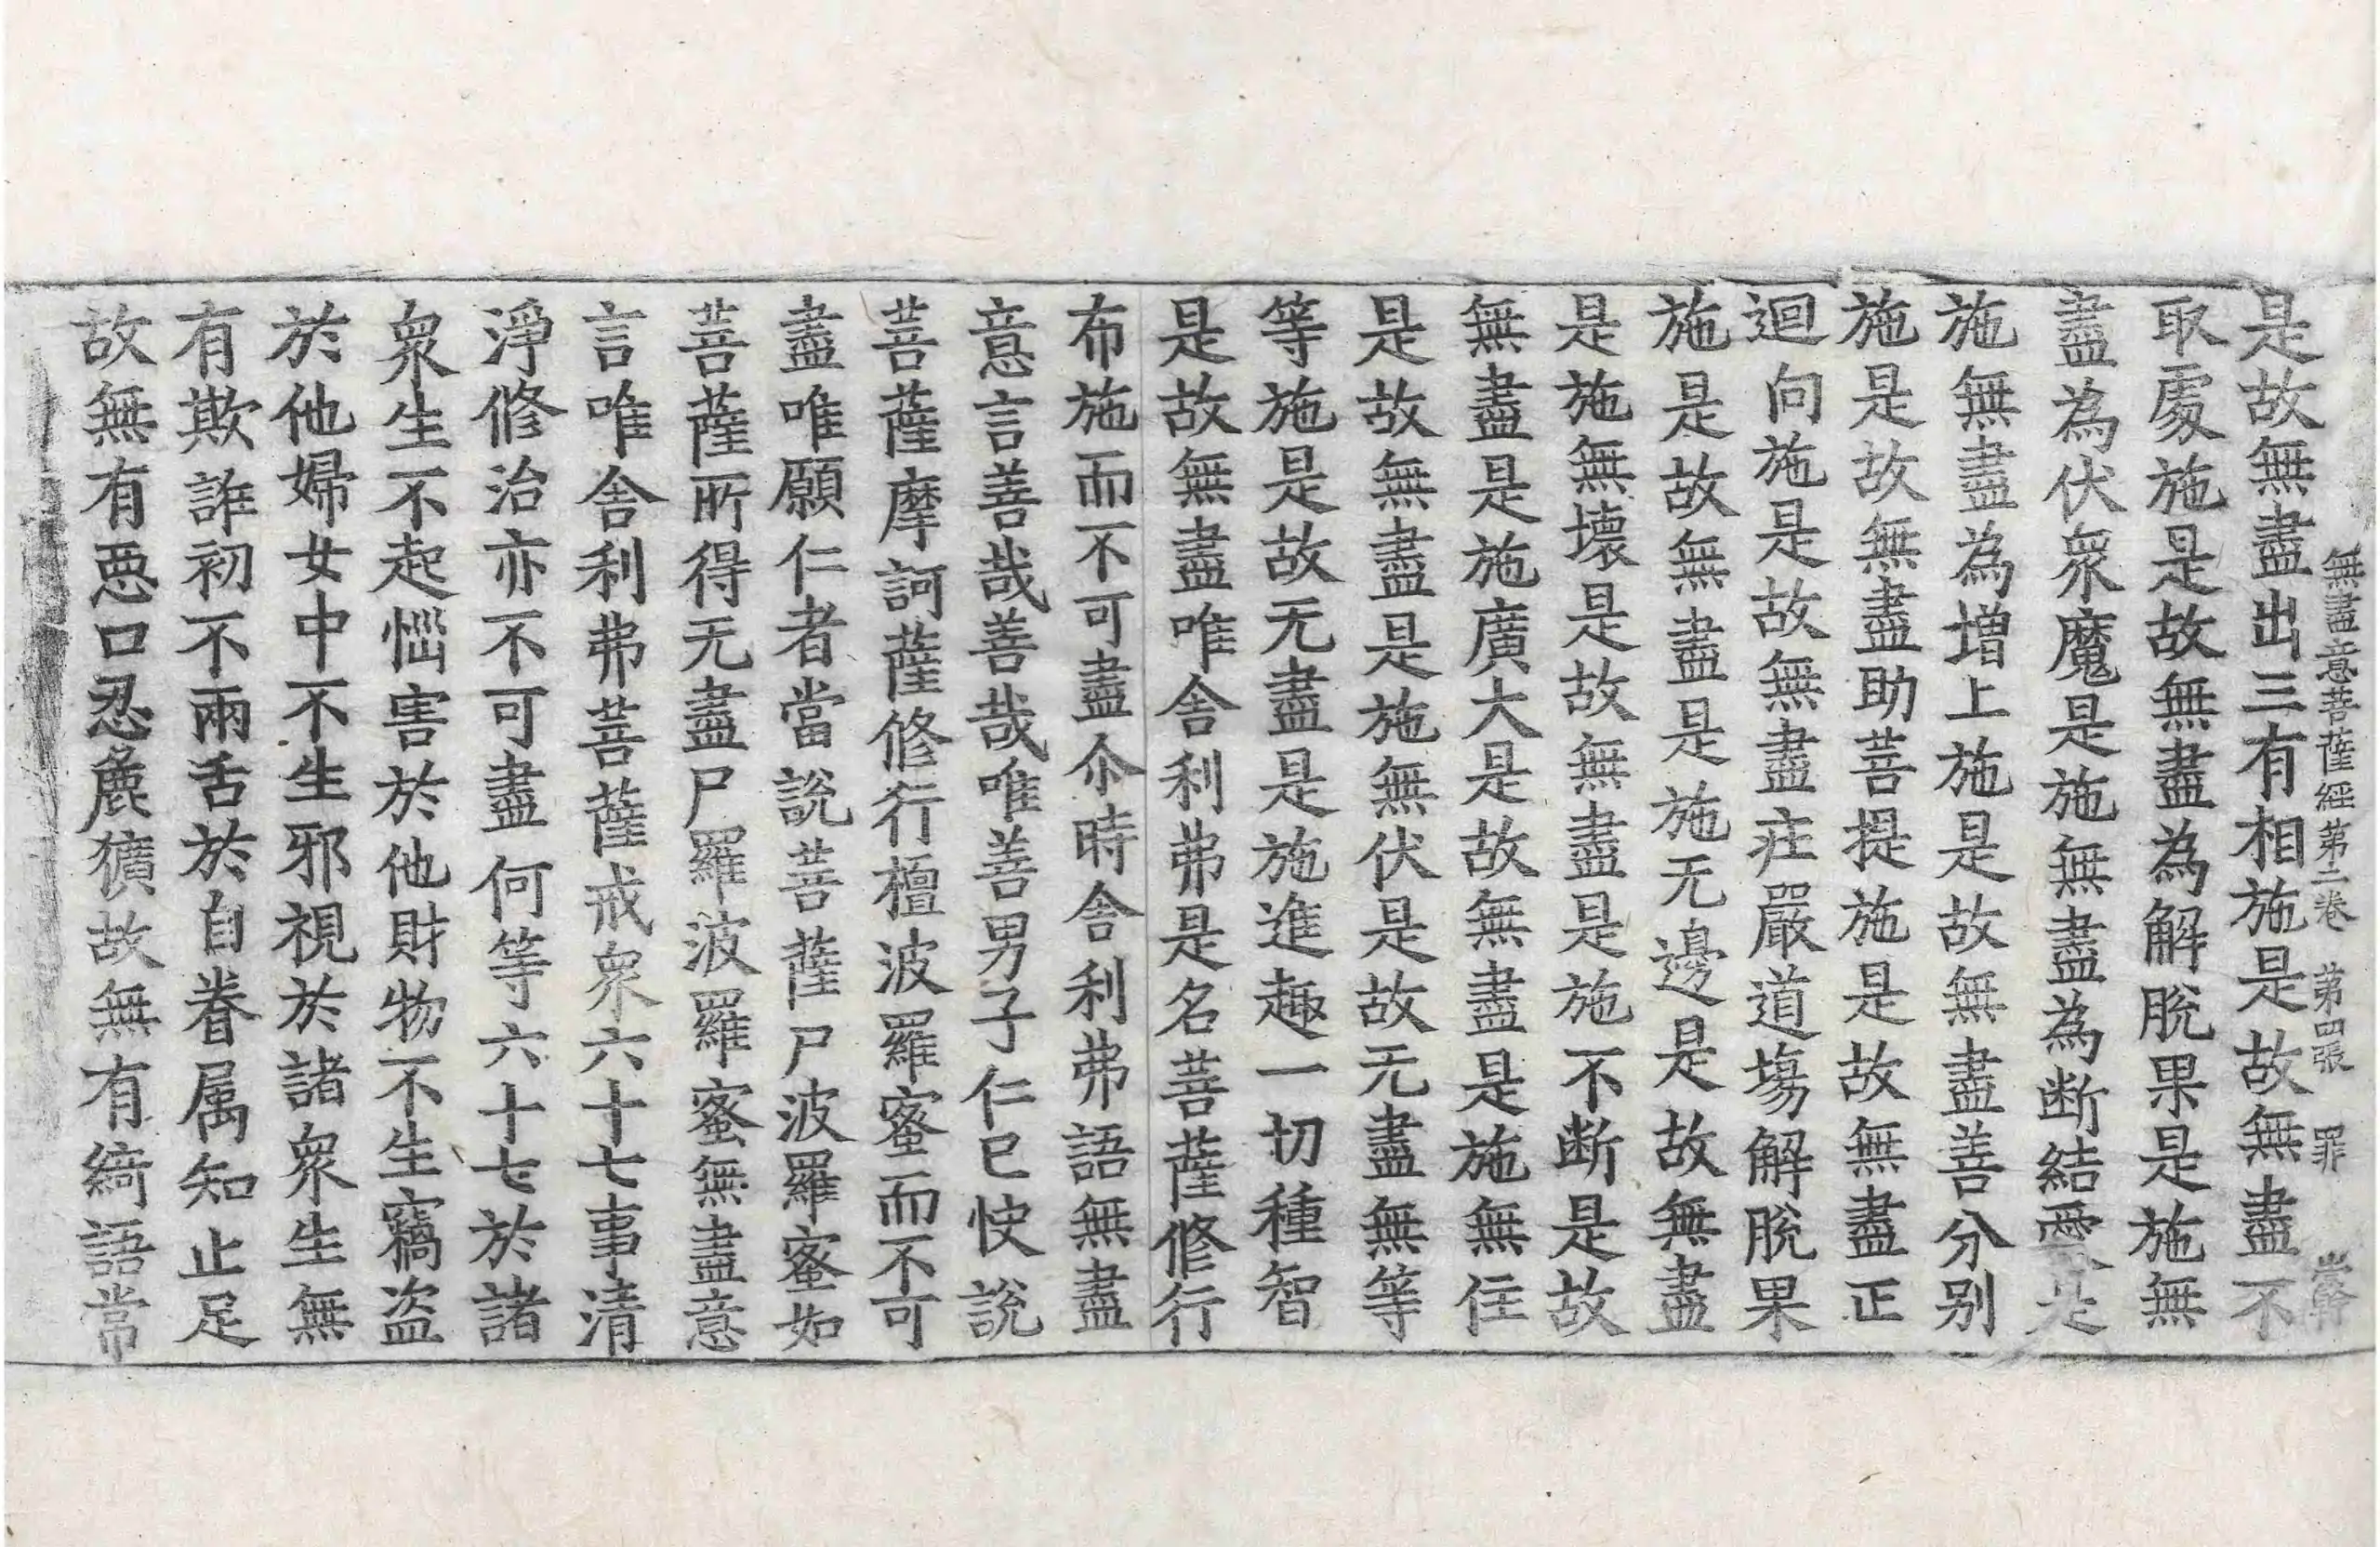 無盡意菩薩經第二卷 第四張 罪
是故無盡出三有相施是故無盡不
取處施是故無盡為解脫果是施無
盡為伏衆魔是施無盡為断結愛是
施無盡為增上施是故無盡善分别
施是故無盡助菩提施是故無盡正
迴向施是故無盡庄嚴道場解脫果
施是故無盡是施无邊是故無盡
是施無壞是故無盡是施不断是故
無盡是施廣大是故無盡是施無住
是故無盡是施無伏是故无盡無等
等施是故无盡是施進趣一切種智
是故無盡唯舍利弗是名菩薩修行
布施而不可盡尒時舍利弗語無盡
意言善哉善哉唯善男子仁已快說
菩薩摩訶薩修行檀波羅蜜而不可
盡唯願仁者當說菩薩尸波羅蜜如
菩薩所得无盡尸羅波羅蜜無盡意
言唯舍利弗菩薩戒衆六十七事清
淨修治亦不可盡何等六十七於諸
衆生不起惱害於他財物不生竊盗
於他婦女中不生邪視於諸衆生無
有欺誑初不兩舌於自眷属知止足
故無有惡口忍麁獷故無有綺語常